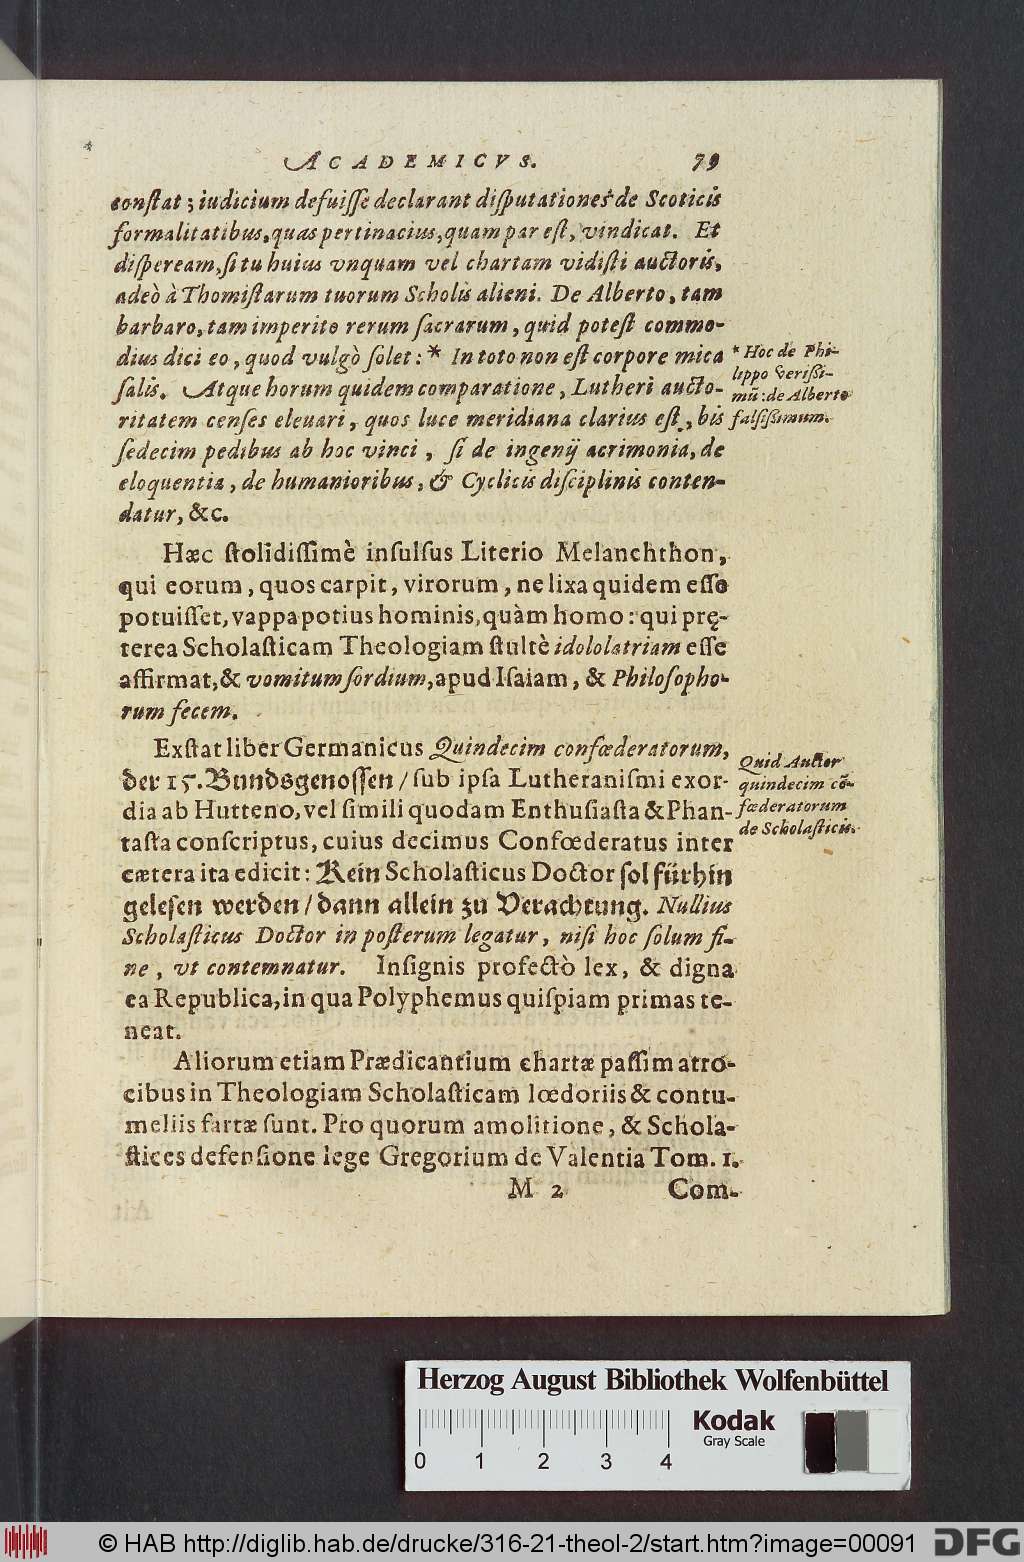 ACADEMICVS. 79
constat; iudicium defuisse declarant disputationes de Scoticis
formalitatibus, quas pertinacius, quam par est, vindicat. Et
dispeream, si tu huius vnquam vel chartam vidisti auctoris,
adeò à Thomistarum tuorum Scholis alieni. De Alberto, tam
barbaro, tam imperito rerum sacrarum, quid potest commo-
dius dici eo, quod vulgò solet: * In toto non est corpore mica
salis. Atque horum quidem comparatione, Lutheri aucto-
ritatem censes eleuari, quos luce meridiana clarius est, bis
sedecim pedibus ab hoc vinci, si de ingenij acrimonia, de
eloquentia, de humanioribus, & Cyclicis disciplinis conten-
datur, &c.
* Hoc de Phi-
lippo verissi-
mũ: de Alberto
falsissimum.
Hæc stolidissimè insulsus Literio Melanchthon,
qui eorum, quos carpit, virorum, ne lixa quidem esse
potuisset, vappa potius hominis, quàm homo: qui prę-
terea Scholasticam Theologiam stultè idololatriam esse
affirmat, & vomitum sordium, apud Isaiam, & Philosopho-
rum fecem.
Exstat liber Germanicus Quindecim confœderatorum,
der 15. Bundsgenossen / sub ipsa Lutheranismi exor-
dia ab Hutteno, vel simili quodam Enthusiasta & Phan-
tasta conscriptus, cuius decimus Confœderatus inter
cætera ita edicit: Kein Scholasticus Doctor sol fürhin
gelesen werden / dann allein zu Verachtung. Nullius
Scholasticus Doctor in posterum legatur, nisi hoc solum fi-
ne, vt contemnatur. Insignis profectò lex, & digna
ea Republica, in qua Polyphemus quispiam primas te-
neat.
Quid Auctor
quindecim cõ-
fœderatorum
de Scholasticis.
Aliorum etiam Prædicantium chartæ passim atro-
cibus in Theologiam Scholasticam lœdoriis & contu-
meliis fartæ sunt. Pro quorum amolitione, & Schola-
stices defensione lege Gregorium de Valentia Tom. 1.
M 2 Com-
Herzog August Bibliothek Wolfenbüttel
0 1 2 3 4
Kodak
Gray Scale
© HAB http://diglib.hab.de/drucke/316-21-theol-2/start.htm?image=00091
DFG